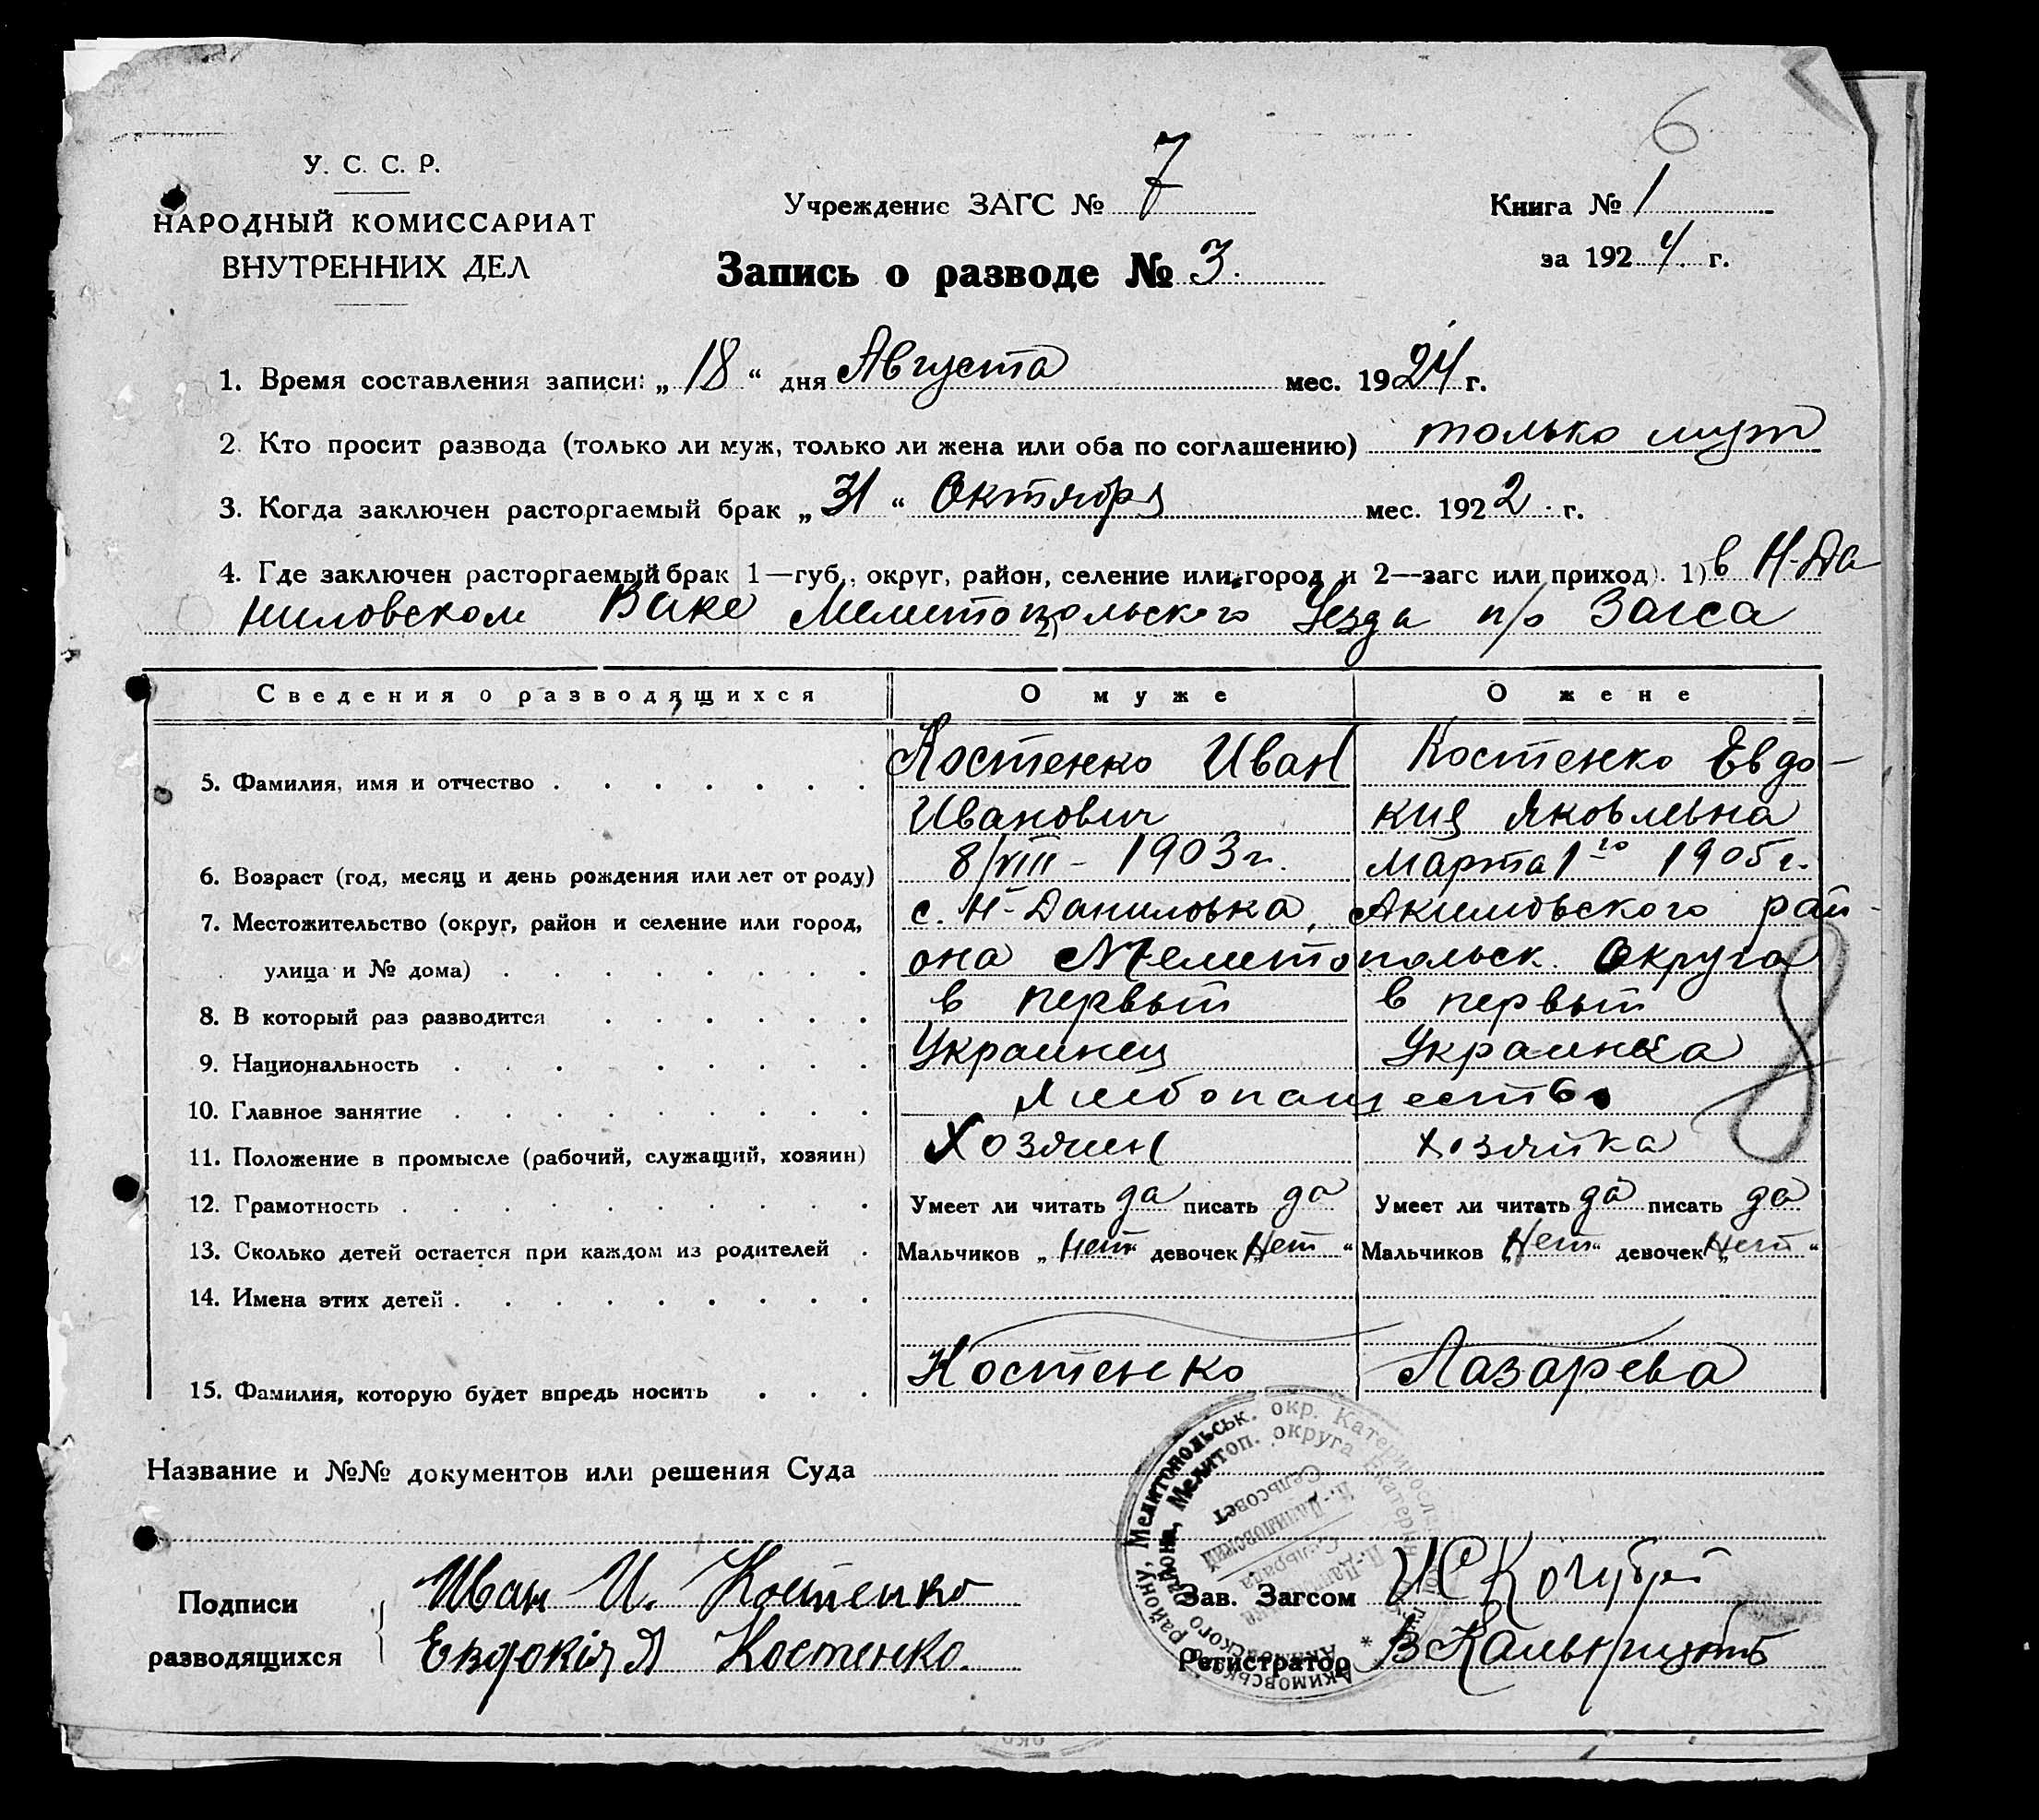 6
У. С. С. Р.
НАРОДНЫЙ КОМИССАРИАТ
ВНУТРЕННИХ ДЕЛ
Учреждение ЗАГС № 7
Запись о разводе № 3.
Книга № 1
за 1924 г.
1. Время составления записи: „ 18 “ дня Августа мес. 1924 г.
2. Кто просит развода (только ли муж, только ли жена или оба по соглашению) только муж
3. Когда заключен расторгаемый брак „ 31 “ Октября мес. 1922 г.
4. Где заключен расторгаемый брак 1—губ., округ, район, селение или город и 2—загс или приход). 1) в Н-Да
ниловском Вике Мелитопольского Уезда п/о Загса
2)
Сведения о разводящихся О муже О жене
5. Фамилия, имя и отчество Костенко Иван Костенко Евдо-
Иванович кия Яковлевна
6. Возраст (год, месяц и день рождения или лет от роду) 8/VIII - 1903 г. Марта 1го 1905 г.
7. Местожительство (округ, район и селение или город, с. Н-Даниловка, Акимовского рай-
улица и № дома) она Мелитопольск. Округа
8. В который раз разводится в первый в первый
9. Национальность Украинец Украинка
10. Главное занятие Хлебопашество
11. Положение в промысле (рабочий, служащий, хозяин) Хозяин хозяйка
12. Грамотность Умеет ли читать да писать да Умеет ли читать да писать да
13. Сколько детей остается при каждом из родителей Мальчиков „ Нет “ девочек „ Нет “ Мальчиков „ Нет “ девочек „ Нет “
14. Имена этих детей
15. Фамилия, которую будет впредь носить Костенко Лазарева
8
Название и №№ документов или решения Суда
Подписи разводящихся
Иван И. Костенко
Евдокія Я Костенко.
Зав. Загсом Кочубей
Регистратор
Акимовського району, Мелитопольськ. окр. Катеринослав
Акимовского района, Мелитоп. округа Екатерин
Н.-Даниловский
Сельсовет